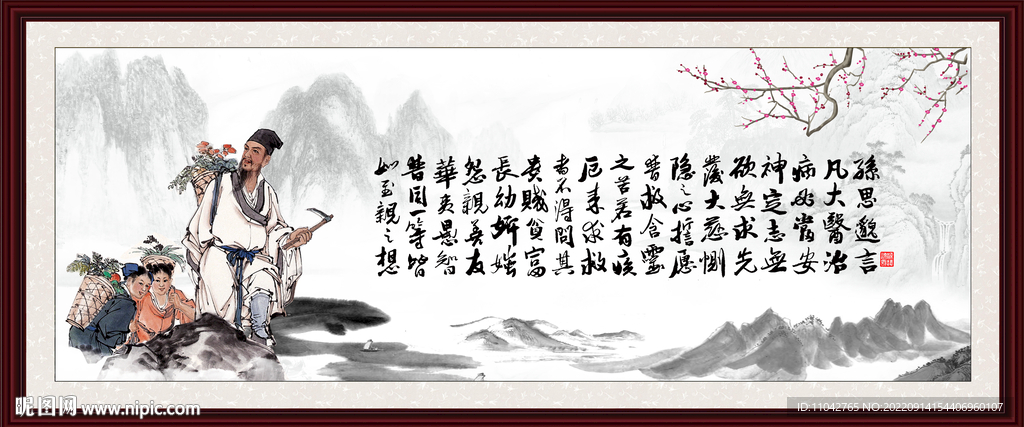 孫思邈言
凡大醫治
病必當安
神定志無
欲無求先
發大慈惻
隐之心誓愿
普救含靈
之苦若有疾
厄来求救
者不得問其
貴賤貧富
長幼妍媸
怨親善友
華夷愚智
普同一等皆
如至親之想
昵图网 www.nipic.com
ID:11042765 NO:20220914154406960107